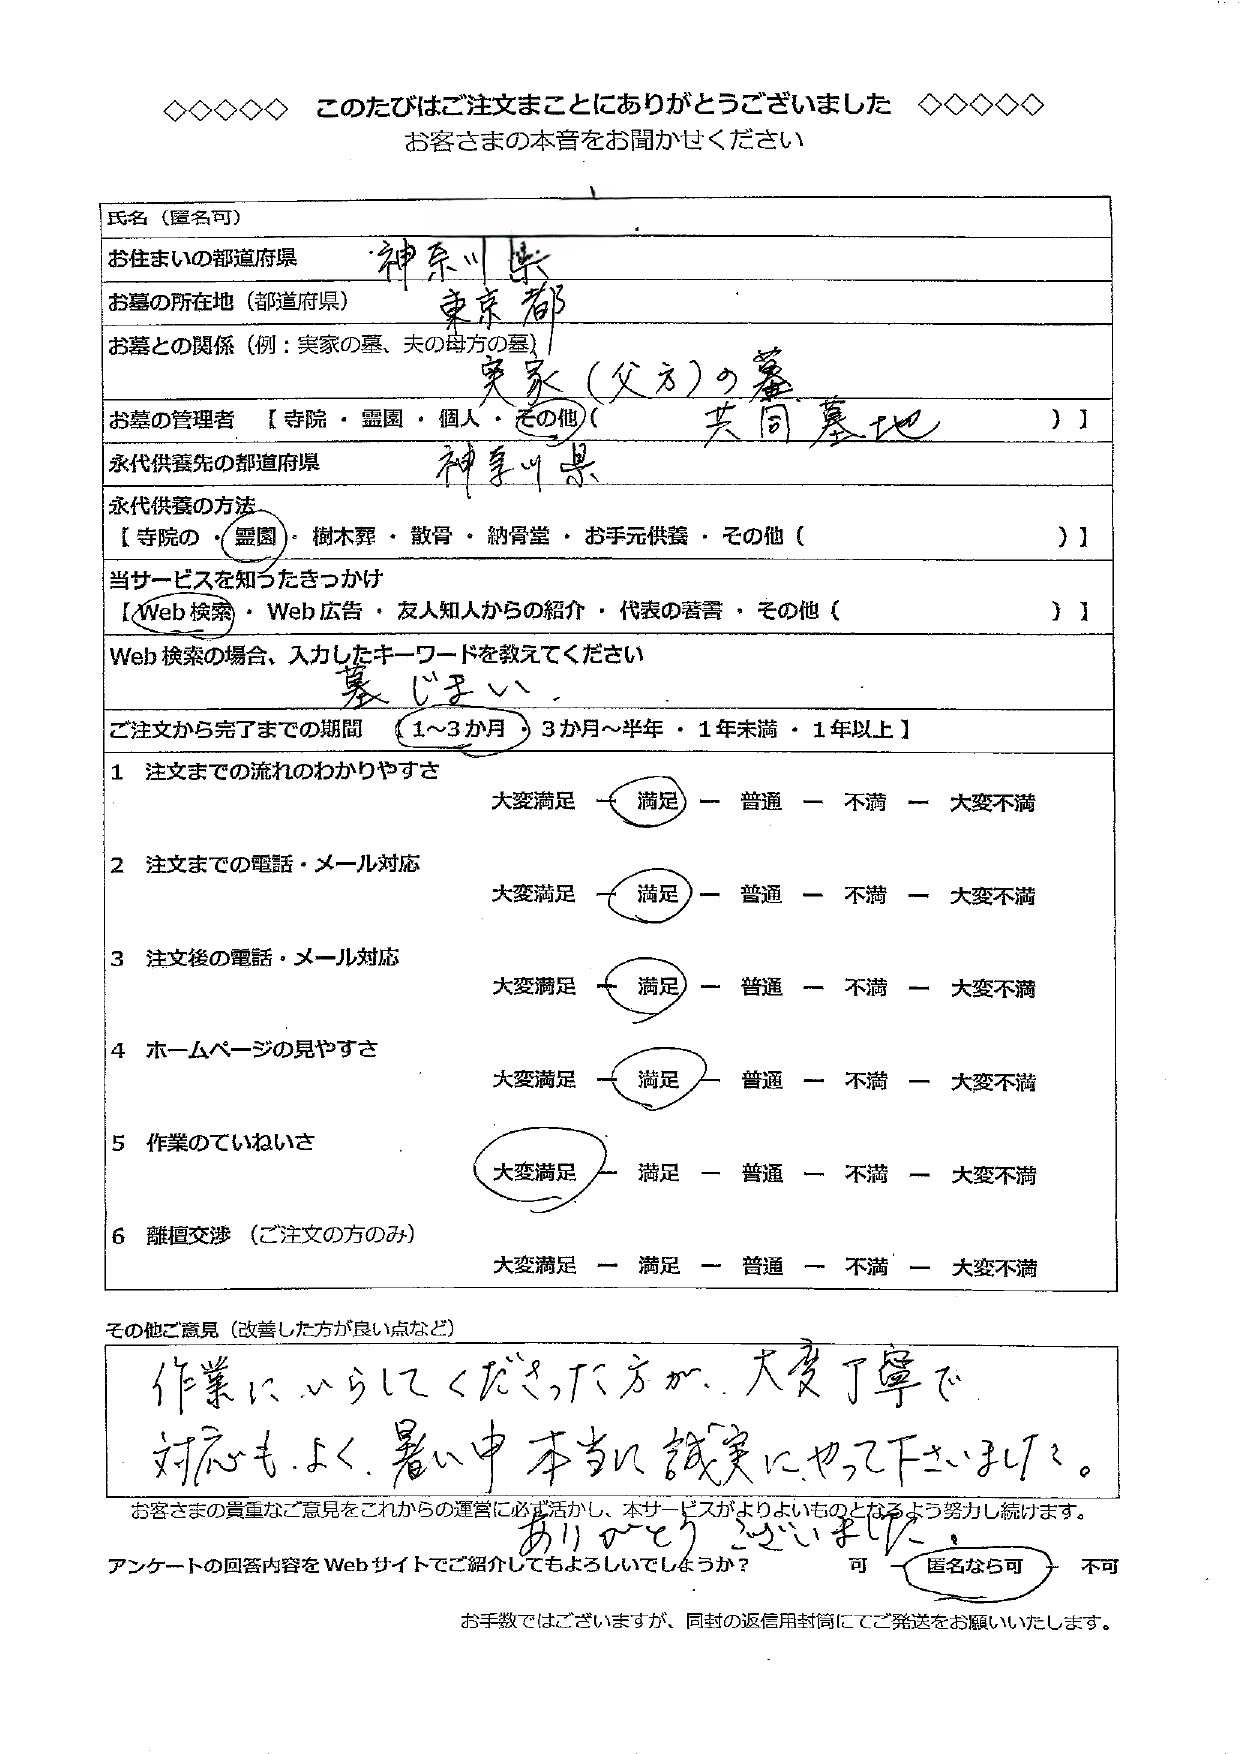 ◇◇◇◇◇ このたびはご注文まことにありがとうございました ◇◇◇◇◇
お客さまの本音をお聞かせください
氏名（匿名可）
お住まいの都道府県 神奈川県
お墓の所在地（都道府県） 東京都
お墓との関係（例：実家の墓、夫の母方の墓）
実家（父方）の墓
お墓の管理者 【 寺院 ・ 霊園 ・ 個人 ・ その他（ 共同墓地 ）】
永代供養先の都道府県 神奈川県
永代供養の方法
【 寺院の ・ 霊園 ・ 樹木葬 ・ 散骨 ・ 納骨堂 ・ お手元供養 ・ その他（ ）】
当サービスを知ったきっかけ
【 Web検索 ・ Web広告 ・ 友人知人からの紹介 ・ 代表の著書 ・ その他（ ）】
Web検索の場合、入力したキーワードを教えてください
墓じまい
ご注文から完了までの期間 【 1～3か月 ・ 3か月～半年 ・ 1年未満 ・ 1年以上 】
1 注文までの流れのわかりやすさ
大変満足 ー 満足 ー 普通 ー 不満 ー 大変不満
2 注文までの電話・メール対応
大変満足 ー 満足 ー 普通 ー 不満 ー 大変不満
3 注文後の電話・メール対応
大変満足 ー 満足 ー 普通 ー 不満 ー 大変不満
4 ホームページの見やすさ
大変満足 ー 満足 ー 普通 ー 不満 ー 大変不満
5 作業のていねいさ
大変満足 ー 満足 ー 普通 ー 不満 ー 大変不満
6 離檀交渉（ご注文の方のみ）
大変満足 ー 満足 ー 普通 ー 不満 ー 大変不満
その他ご意見（改善した方が良い点など）
作業にいらしてくださった方が、大変丁寧で
対応もよく、暑い中本当に誠実にやって下さいました。
お客さまの貴重なご意見をこれからの運営に必ず活かし、本サービスがよりよいものとなるよう努力し続けます。
ありがとうございました。
アンケートの回答内容をWebサイトでご紹介してもよろしいでしょうか？ 可 ー 匿名なら可 ー 不可
お手数ではございますが、同封の返信用封筒にてご発送をお願いいたします。